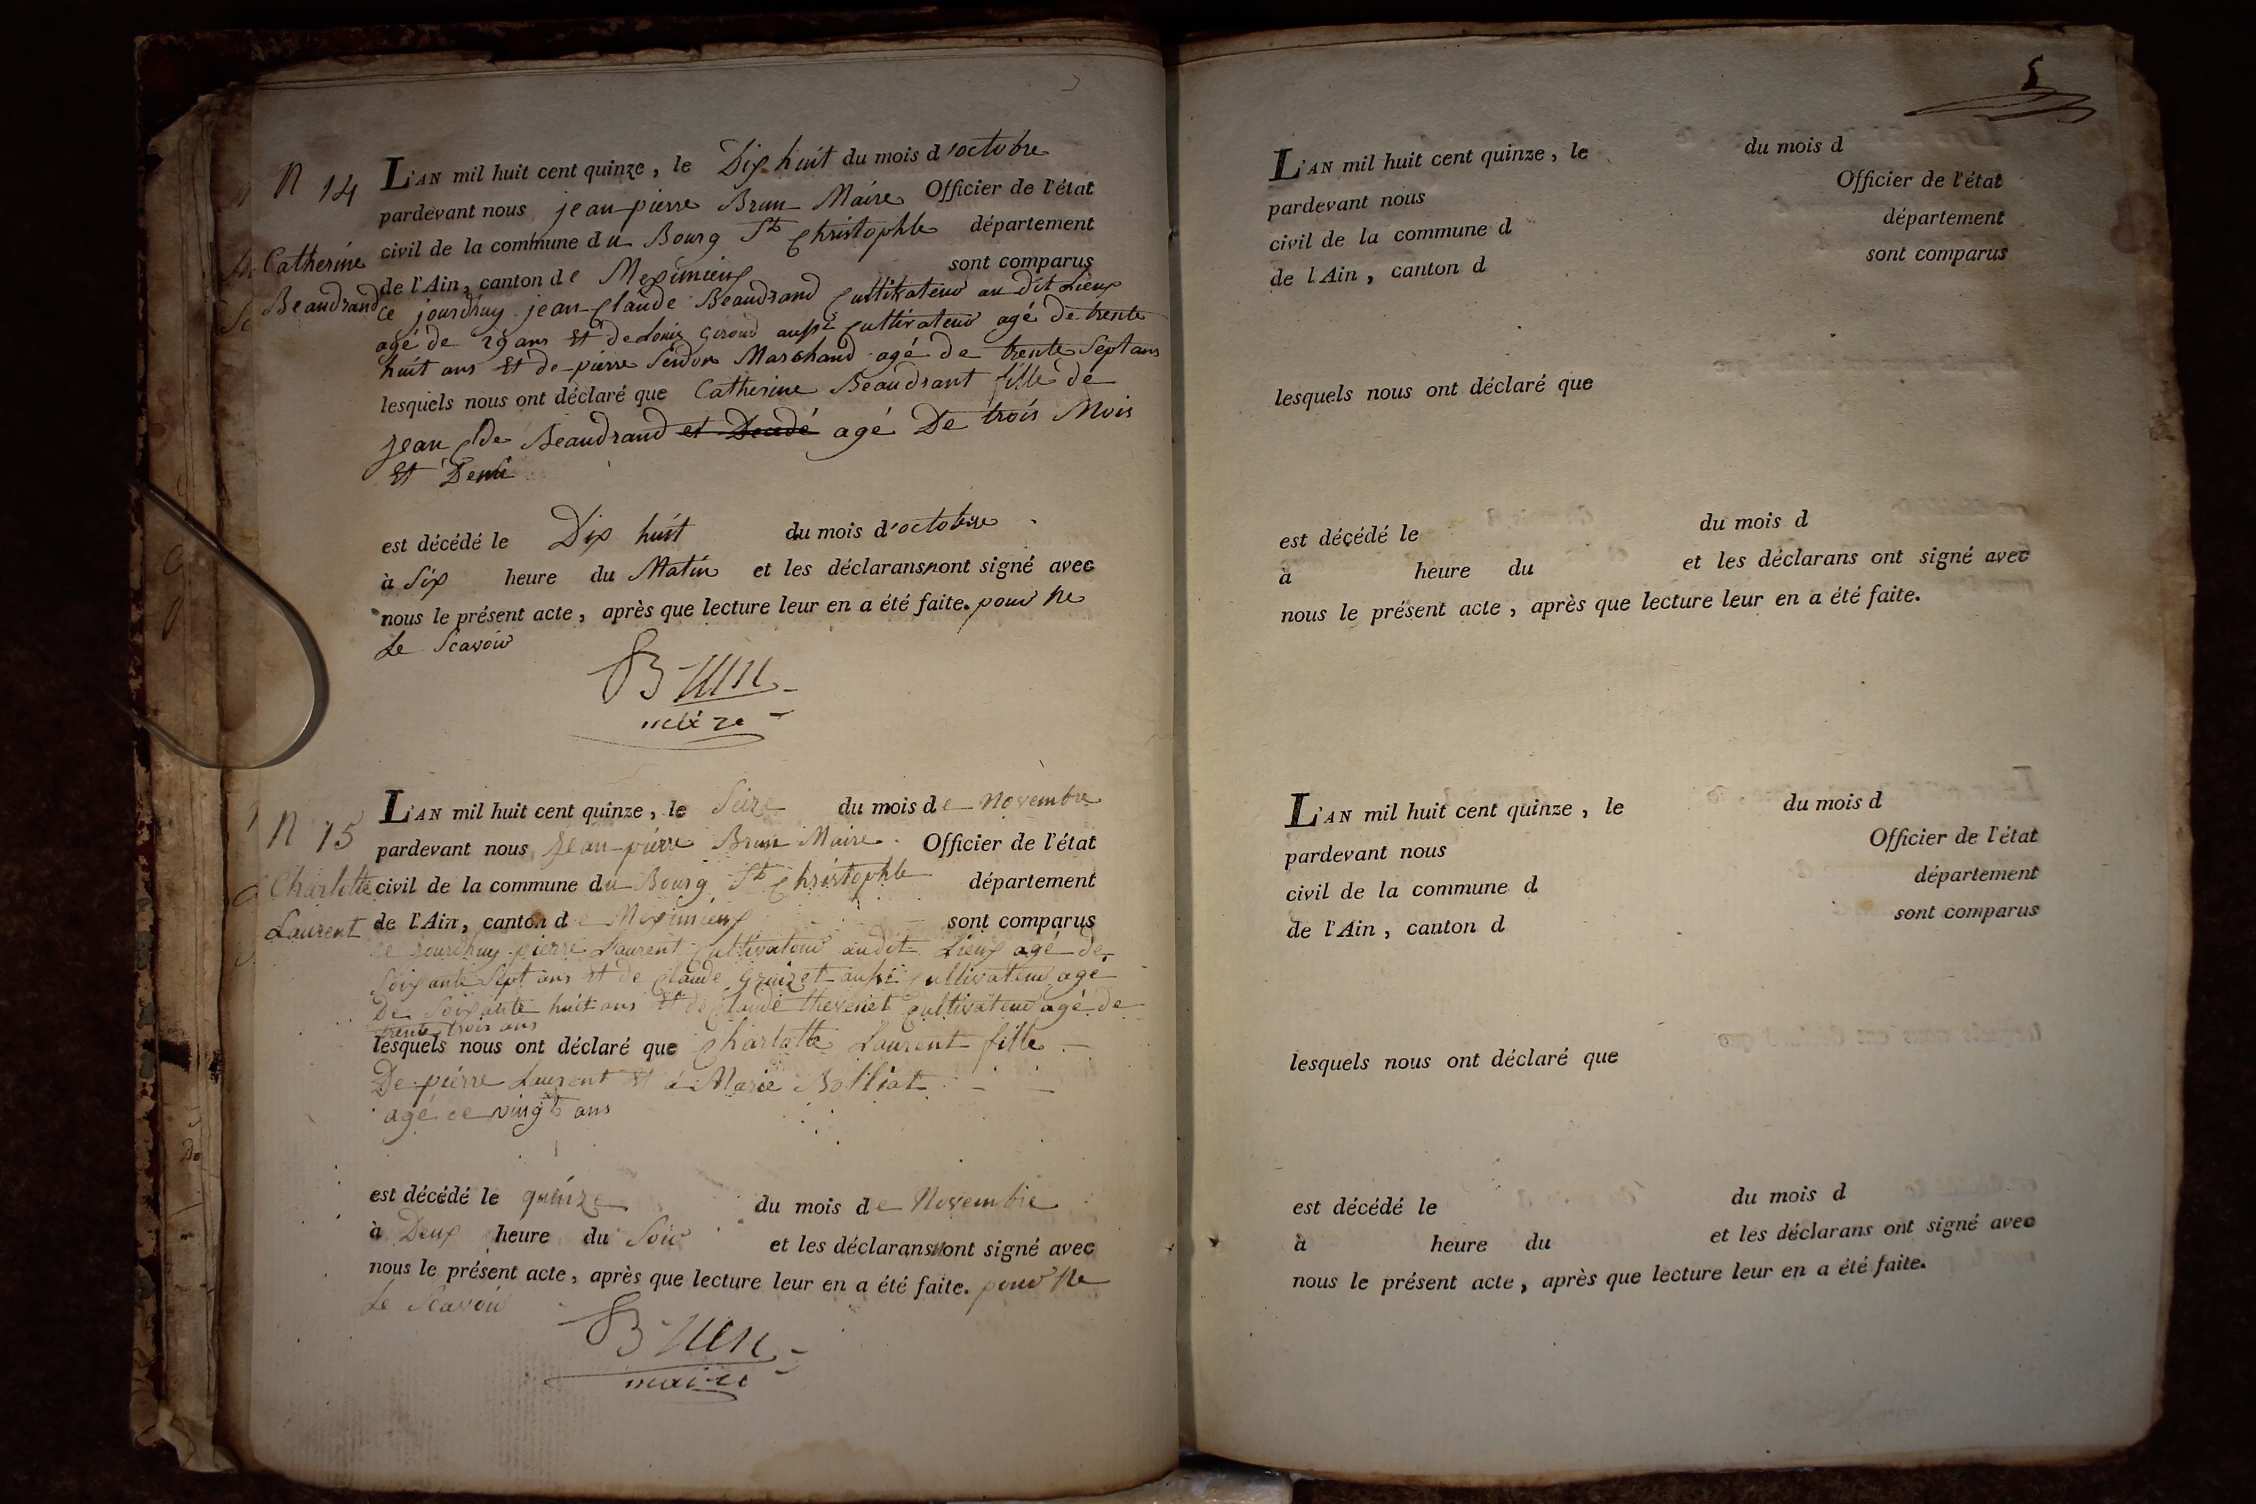 N 14
Catherine
Beaudrand
L'AN mil huit cent quinze, le Dix huit du mois d'octobre
pardevant nous jean pierre Brun Maire Officier de l'état
civil de la commune du Bourg St Christophle département
de l'Ain, canton de Meximieux sont comparus
Ce jourdhuy jean Claude Beaudrand Cultivateur au dit Lieux
agé de 29 ans Et de Louis Giroud aussi Cultivateur agé de trente
huit ans Et de pierre Marchand agé de trente Sept ans
lesquels nous ont déclaré que Catherine Beaudrant fille de
jean Cde Beaudrand et Decedé agé De trois Mois
Et Demi
est décédé le Dix huit du mois d'octobre
à Six heure du Matin et les déclarans nont signé avec
nous le présent acte, après que lecture leur en a été faite. pour Ne
Le Scavoir
Brun
maire
N 15
Charlotte
Laurent
L'AN mil huit cent quinze, le Seize du mois de Novembre
pardevant nous Jean pierre Brun Maire Officier de l'état
civil de la commune du Bourg St Christophle département
de l'Ain, canton de Meximieux sont comparus
Ce jourdhuy pierre Laurent Cultivateur audit Lieux agé de
Soixante Sept ans Et de Claude aussi Cultivateur agé
De Soixante huit ans Et de Claude thevenet Cultivateur agé de
trente trois ans
lesquels nous ont déclaré que Charlotte Laurent fille
De pierre Laurent Et á Marie Bolliat
agé de vingt ans
est décédé le quinze du mois de Novembre
à Deux heure du Soir et les déclarans nont signé avec
nous le présent acte, après que lecture leur en a été faite. pour Ne
Le Scavoir
Brun
maire
5
L'AN mil huit cent quinze, le du mois d
pardevant nous Officier de l'état
civil de la commune d département
de l'Ain, canton d sont comparus
lesquels nous ont déclaré que
est décédé le du mois d
à heure du et les déclarans ont signé avec
nous le présent acte, après que lecture leur en a été faite.
L'AN mil huit cent quinze, le du mois d
pardevant nous Officier de l'état
civil de la commune d département
de l'Ain, canton d sont comparus
lesquels nous ont déclaré que
est décédé le du mois d
à heure du et les déclarans ont signé avec
nous le présent acte, après que lecture leur en a été faite.